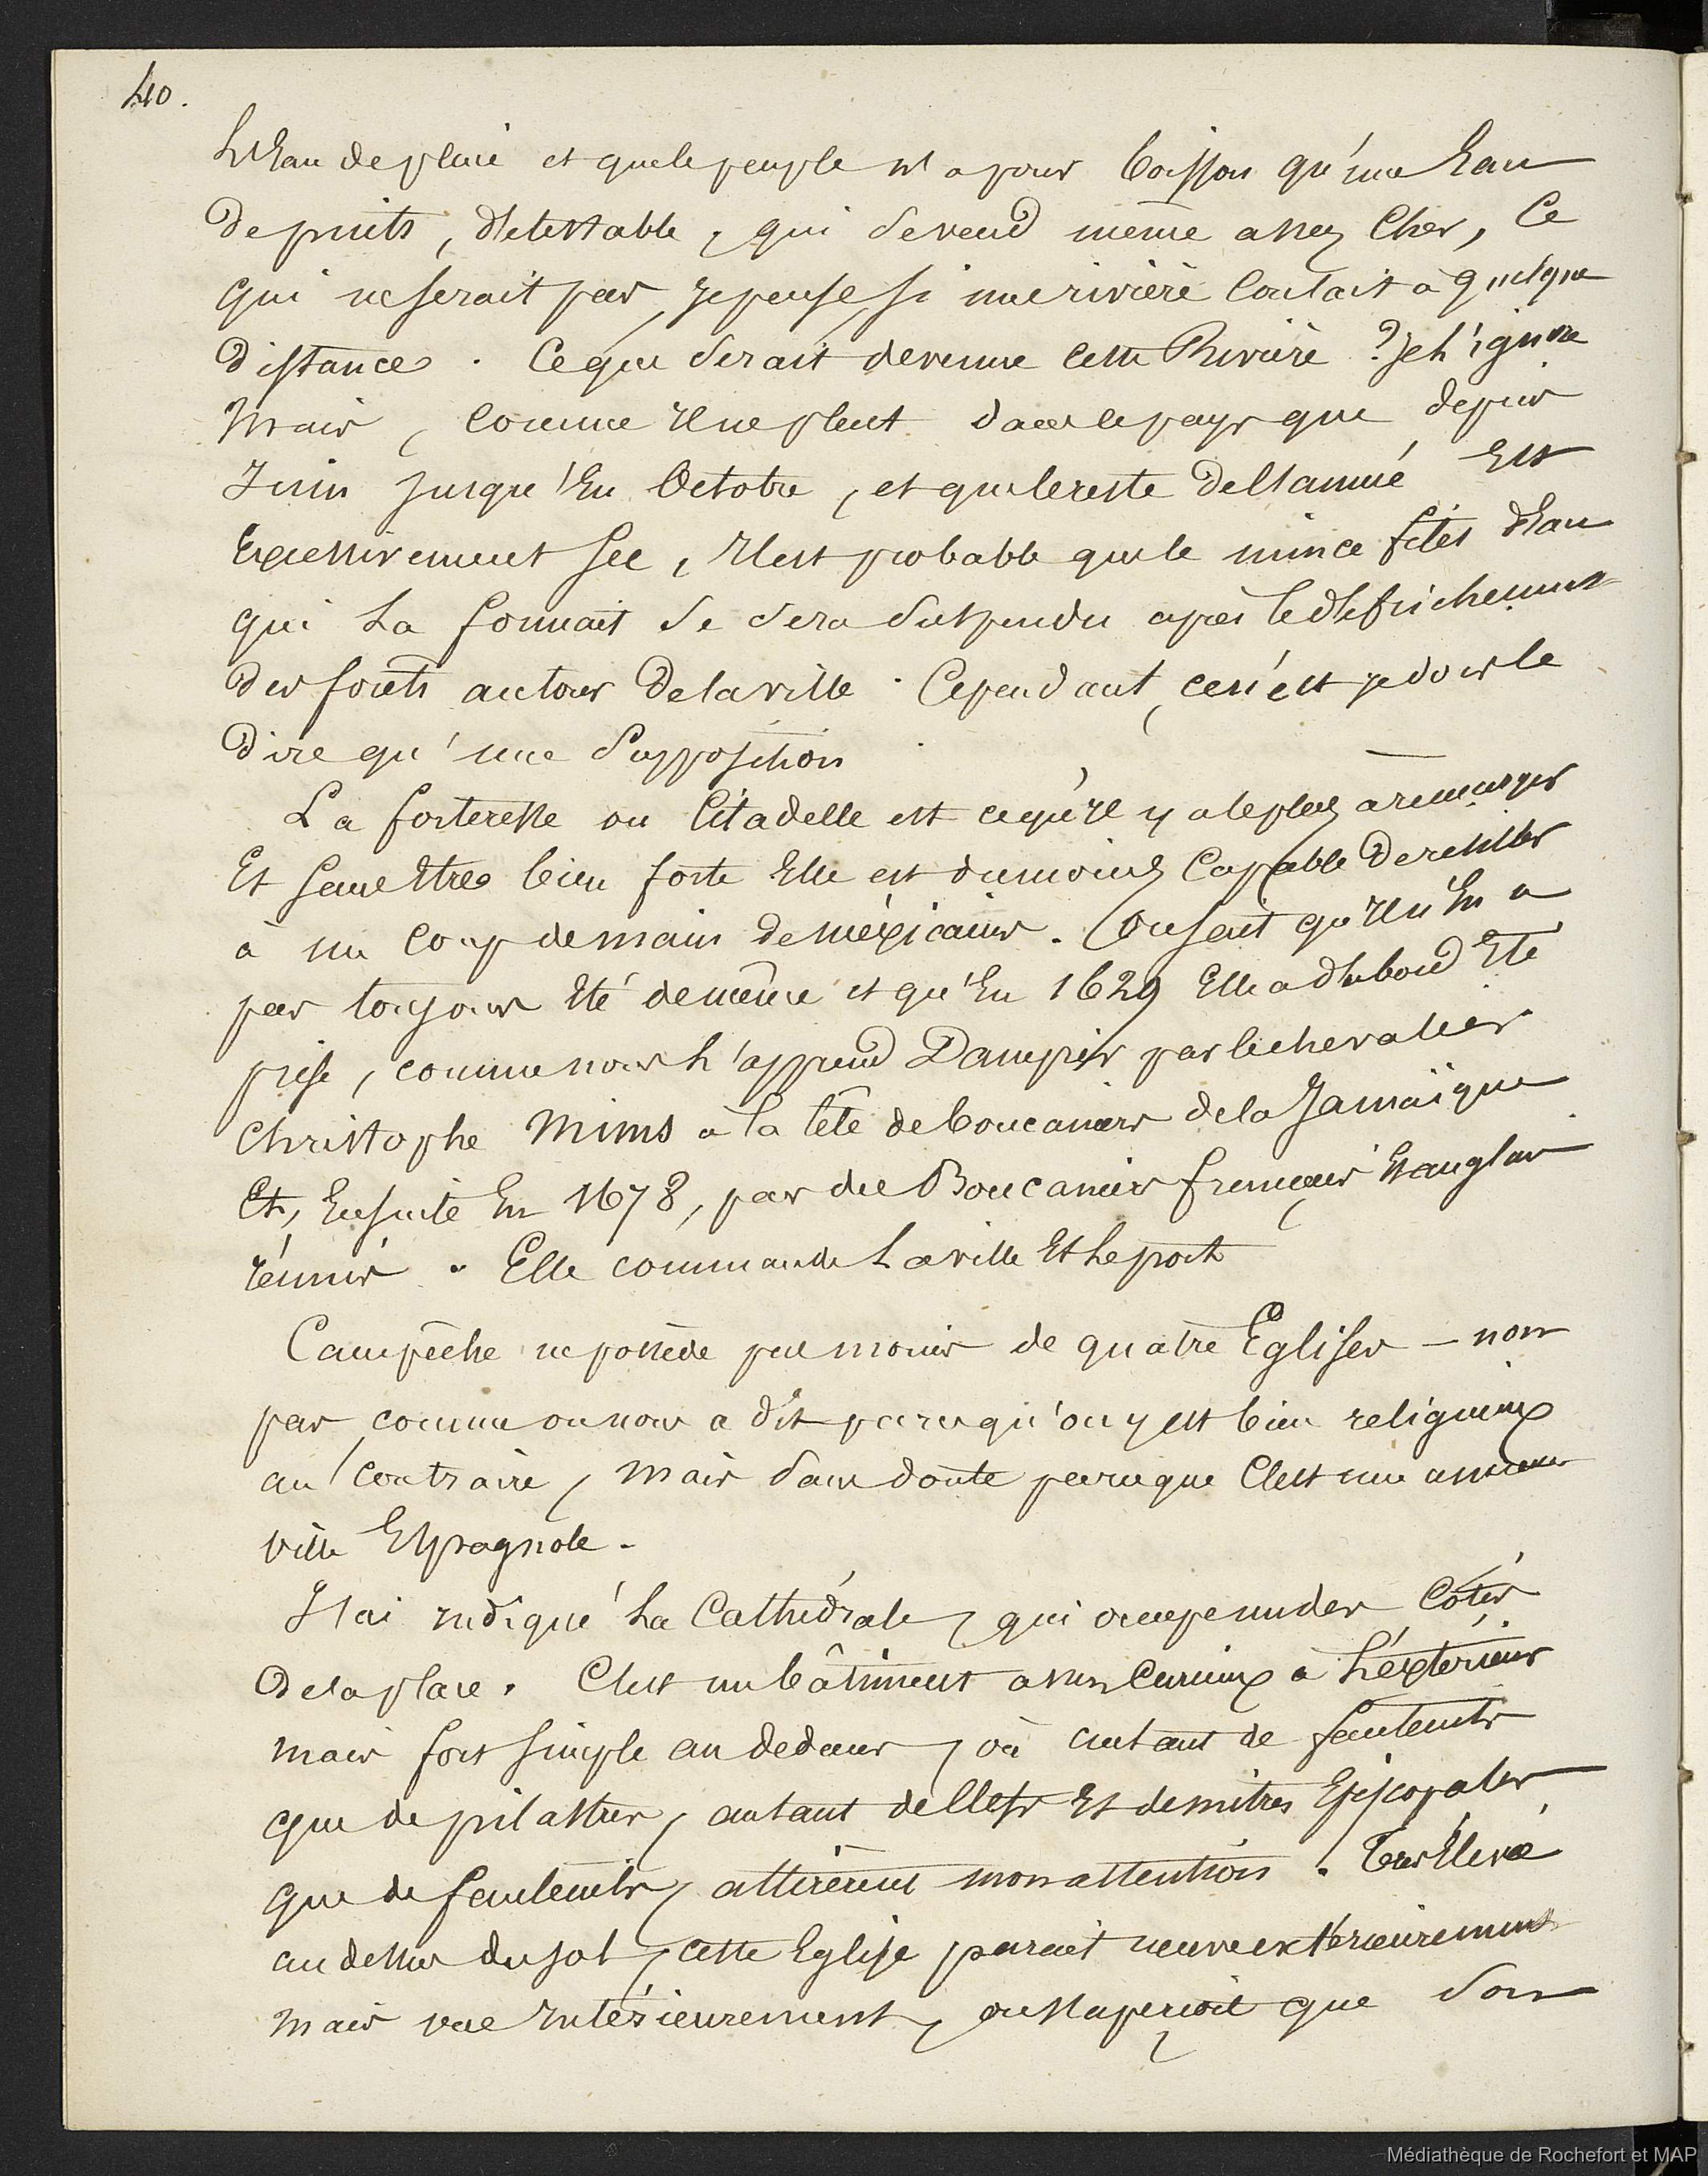 40.
L'Eau de pluie et que le peuple n'a pour boisson qu'une Eau
de puits, détestable, qui se vend même assez cher, ce
qui ne serait pas, je pense, si une rivière coulait à quelque
distance. Ce que serait devenue cette Rivière ? Je l'ignore
Mais, comme il ne pleut dans le pays que depuis
Juin jusqu'En Octobre, et que le reste de l'année Est
Excessivement sec, il est probable que le mince filet d'Eau
qui la formait se sera suspendu après le défrichement
des forêts autour de la ville. Cependant, ce n'est je dois le
dire qu'une supposition
La forteresse ou Citadelle est ce qu'il y a le plus à remarquer
Et sans Etre bien forte Elle est du moins capable de résister
à un coup de main de méxicains. On sait qu'il n'En a
pas toujours Eté de même et qu'En 1629 Elle a d'abord Eté
prise, comme nous l'apprend Dampier par le chevalier
Christophe Mims à la tête de boucaniers de la Jamaïque
Et, Ensuite En 1678, par des Boucaniers français Et anglais
réunis. Elle commande la ville Et le port
Campêche ne possède pas moins de quatre Eglises - non
pas comme on nous a dit parce qu'on y est bien religieux
au contraire, mais sans doute parce que c'est une ancienne
ville Espagnole.
J'ai indiqué la Cathédrale, qui occupe un des côtés
de la place. C'est un bâtiment assez curieux à l'éxtérieur
mais fort simple au dedans, où autant de fauteuils
que de pilastres, autant de clefs Et de mitres Episcopales
que de fauteuils, attirèrent mon attention. Très Elevé
au dessus du sol, cette Eglise parait neuve extérieurement
mais vue intérieurement, on s'aperçoit que son
Médiathèque de Rochefort et MAP